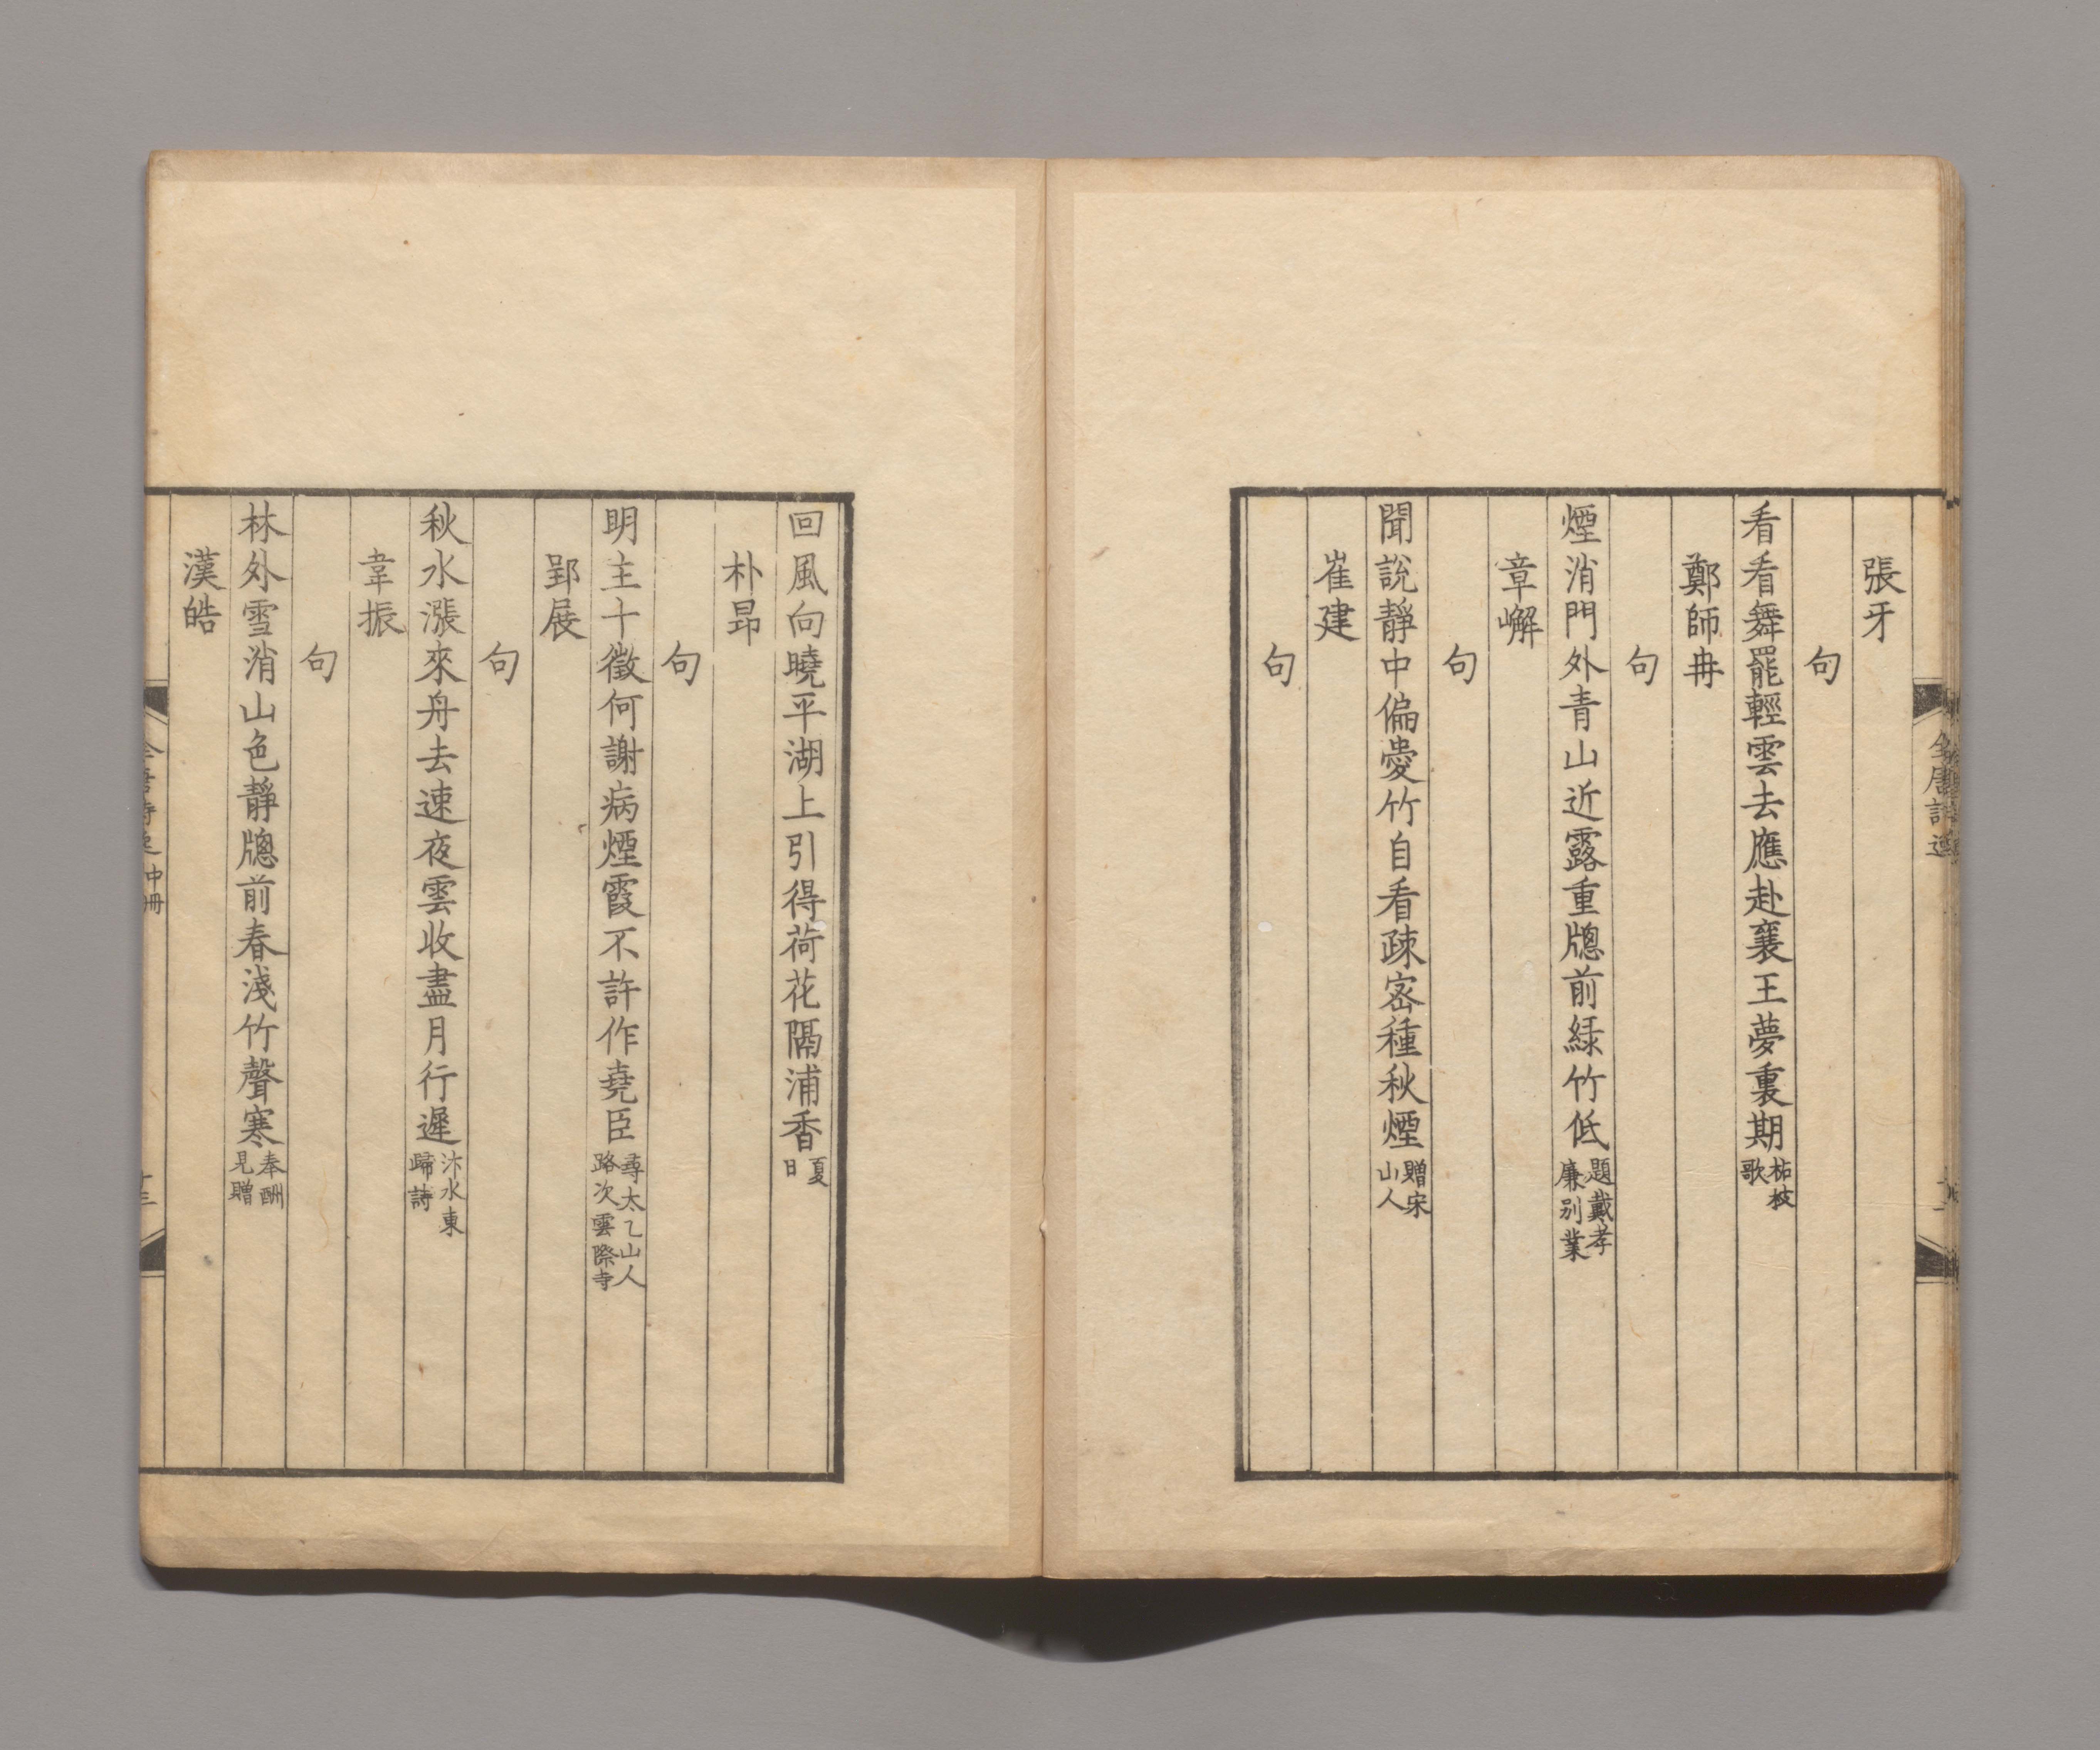 張牙
句
看看舞罷輕雲去應赴襄王夢裏期 柘枝歌
鄭師冉
句
煙消門外青山近露重牕前緑竹低 題戴孝廉別業
章嶰
句
聞說靜中偏愛竹自看疎密種秋煙 贈宋山人
崔建
句
回風向曉平湖上引得荷花隔浦香 夏日
朴昂
句
明主十徵何謝病煙霞不許作堯臣 尋太乙山人路次雲際寺
郢展
句
秋水漲來舟去速夜雲收盡月行遲 汴水東歸詩
韋振
句
林外雪消山色靜牕前春淺竹聲寒 奉酬見贈
漢皓
全唐詩逸 中冊
十三